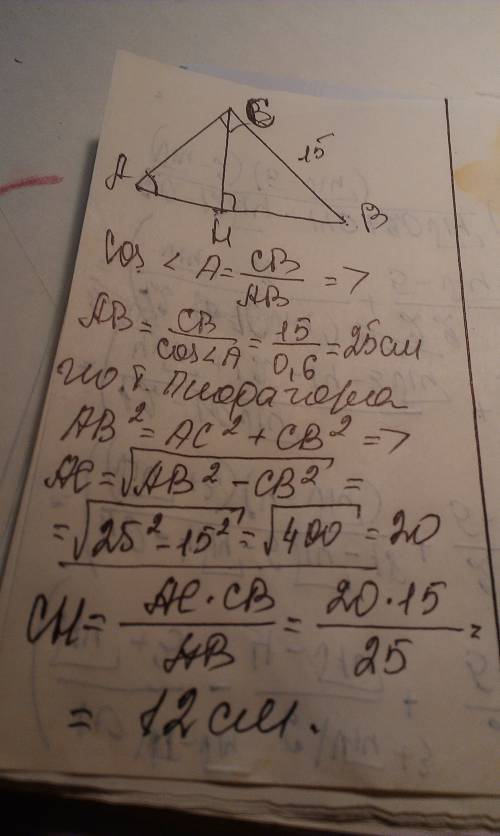 C
15
A
H
B
Cos < A = CB / AB =>
AB = CB / Cos<A = 15 / 0,6 = 25 см
по т. Пифагора
AB² = AC² + CB² =>
AC = √AB² - CB² =
= √25² - 15² = √400 = 20
CH = AC · CB / AB = 20 · 15 / 25 =
= 12 см.